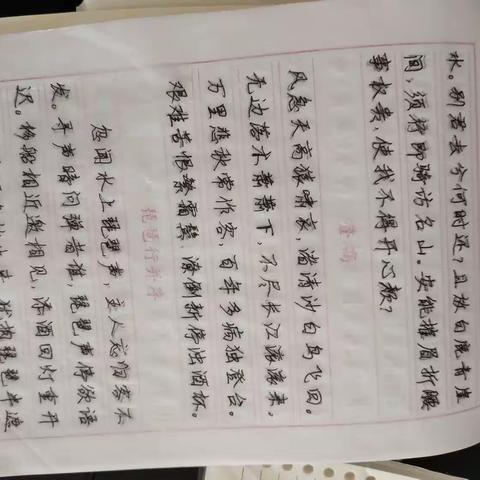 水。别君去今何时还?且放白鹿青崖
间,须行即骑访名山。安能摧眉折腰
事权贵,使我不得开心颜?
登高
风急天高猿啸哀,渚清沙白鸟飞回。
无边落木萧萧下,不尽长江滚滚来,
万里悲秋常作客,百年多病独登台。
艰难苦恨繁霜鬓,潦倒新停浊酒杯。
琵琶行并序
忽闻水上琵琶声,主人忘归客不
发。寻声暗问弹者谁,琵琶声停欲语
迟。移船相近邀相见,添酒回灯重开
来,犹抱琵琶半遮